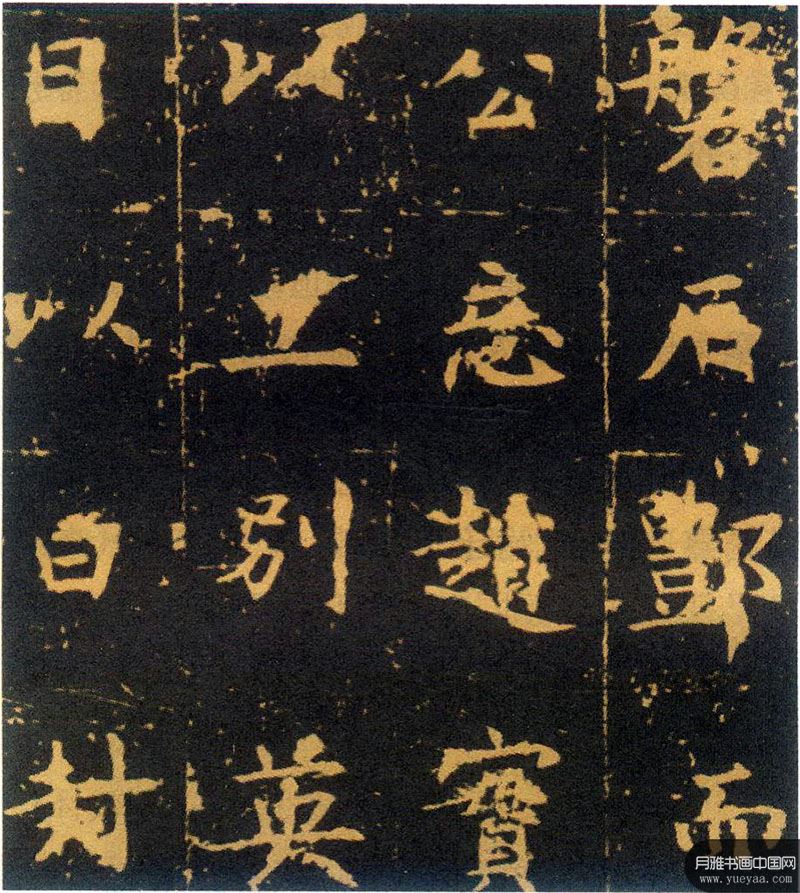 磐石酆而
公忘趙寶
以別英
日以白封
月雅书画中国网
www.yueyaa.com